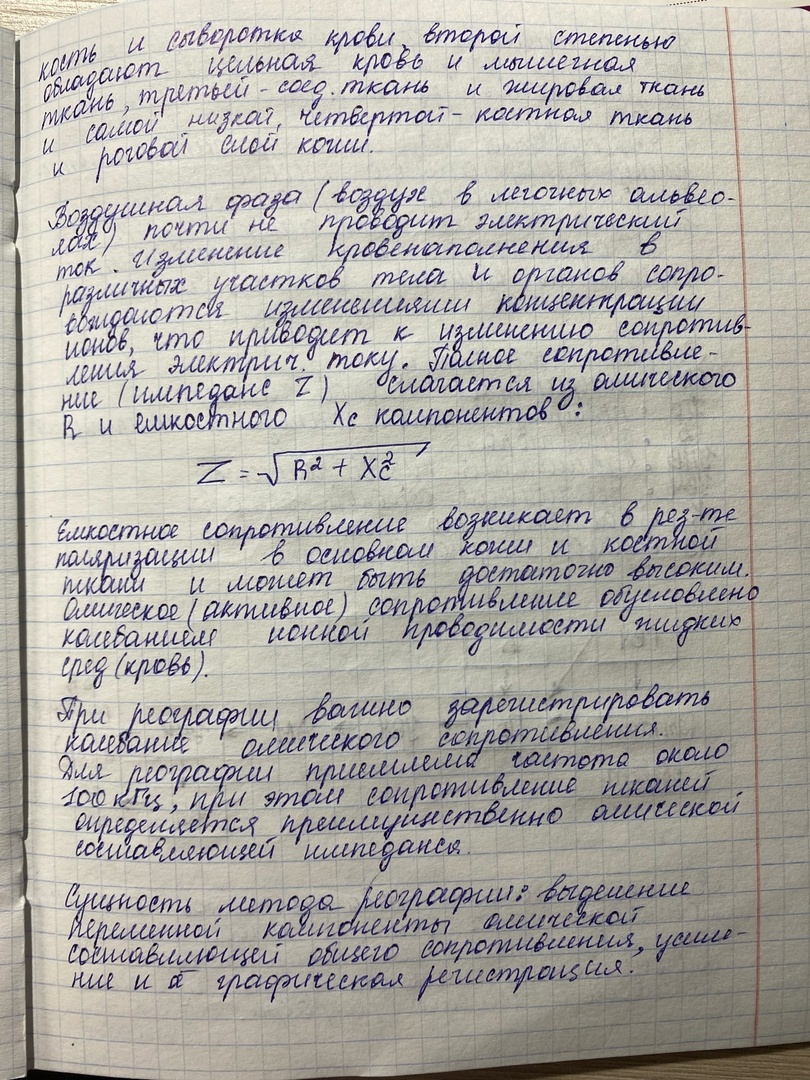 кость и сыворотка крови, второй степенью
обладают цельная кровь и мышечная
ткань, третьей - соед. ткань и жировая ткань
и самой низкой, четвертой - костная ткань
и роговой слой кожи.
Воздушная фаза (воздух в легочных альвео-
лах) почти не проводит электрический
ток. Изменение кровенаполнения в
различных участков тела и органов сопро-
вождаются изменениями концентрации
ионов, что приводит к изменению сопротив-
ления электрич. току. Полное сопротивле-
ние (импеданс Z) слагается из омического
R и емкостного Xc компонентов:
Z = √R² + Xc²
Емкостное сопротивление возникает в рез-те
поляризации в основном кожи и костной
ткани и может быть достаточно высоким.
Омическое (активное) сопротивление обусловлено
колебанием ионной проводимости жидких
сред (кровь).
При реографии важно зарегистрировать
колебание омического сопротивления.
Для реографии приемлема частота около
100 кГц, при этом сопротивление тканей
определяется преимущественно омической
составляющей импеданса.
Сущность метода реографии: выделение
переменной компоненты омической
составляющей общего сопротивления, усиле-
ние и графическая регистрация.